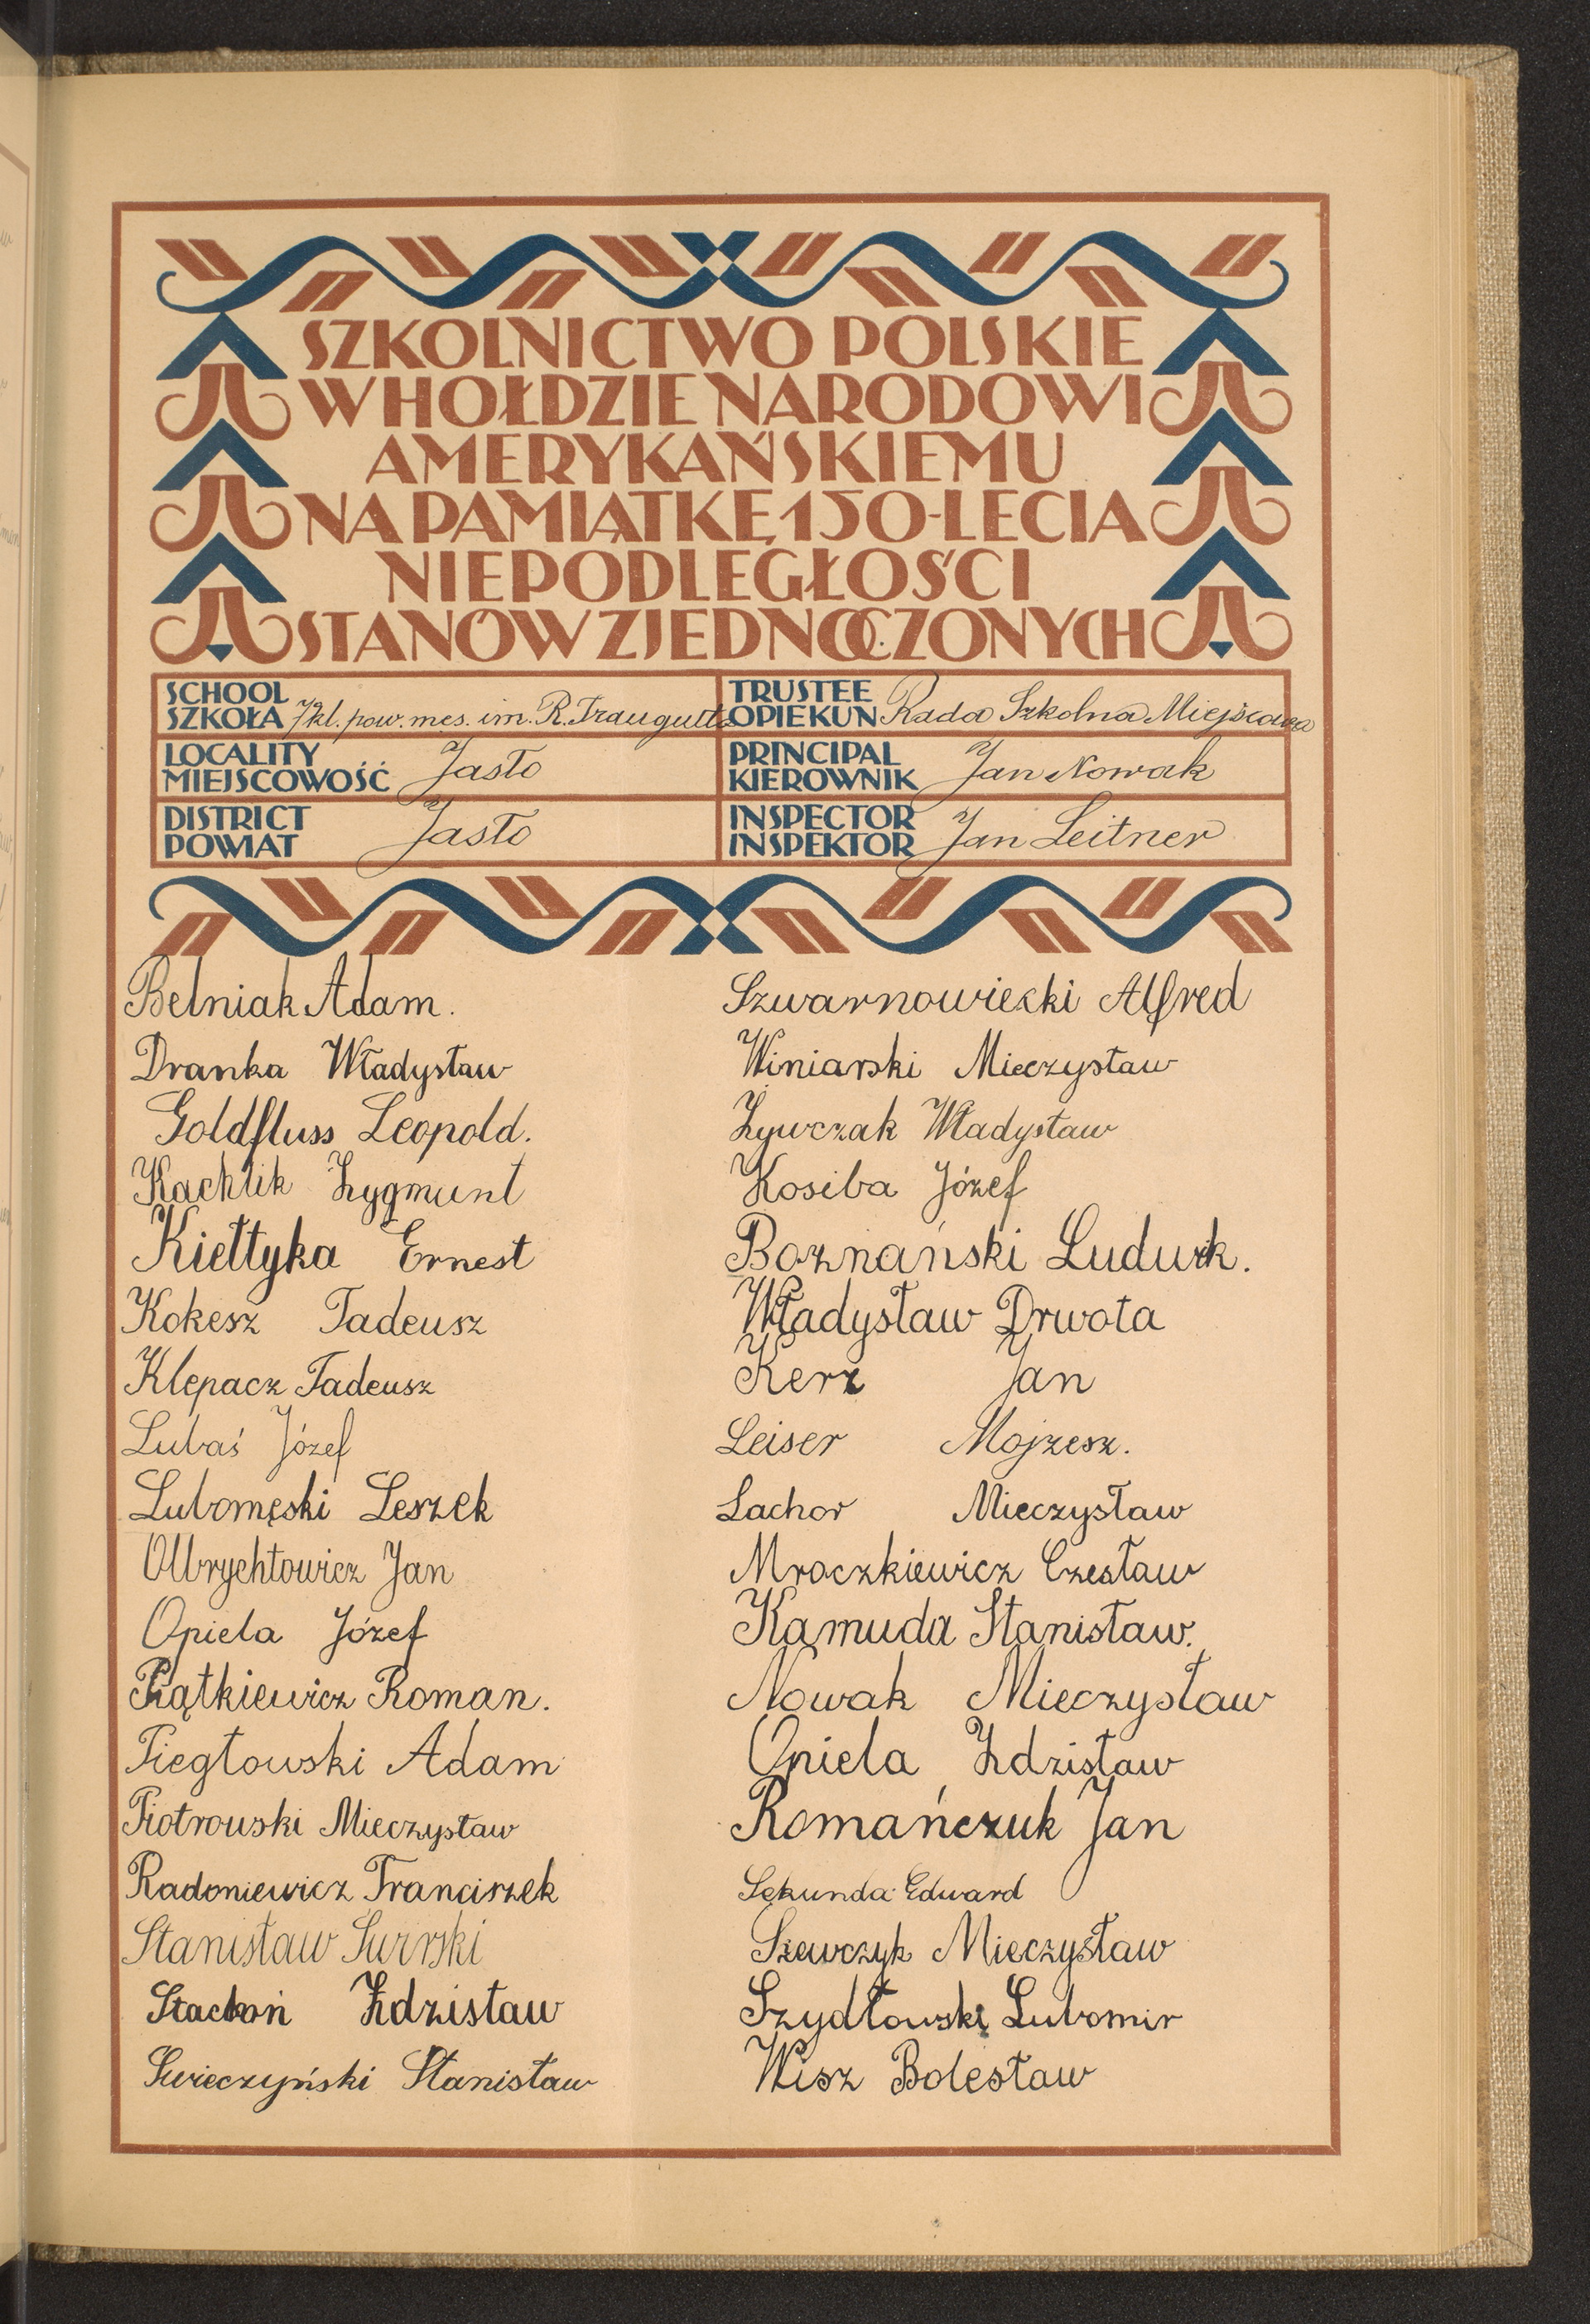 SZKOLNICTWO POLSKIE
W HOŁDZIE NARODOWI
AMERYKAŃSKIEMU
NA PAMIĄTKĘ 150-LECIA
NIEPODLEGŁOŚCI
STANÓW ZJEDNOCZONYCH
SCHOOL
SZKOŁA 7kl. pow. męs. im. R. Traugutta
TRUSTEE
OPIEKUN Rada Szkolna Miejscowa
LOCALITY
MIEJSCOWOŚĆ Jasło
PRINCIPAL
KIEROWNIK Jan Nowak
DISTRICT
POWIAT Jasło
INSPECTOR
INSPEKTOR Jan Leitner
Belniak Adam.
Dranka Władysław
Goldfluss Leopold.
Kachlik Zygmunt
Kiełtyka Ernest
Kokesz Tadeusz
Klepacz Tadeusz
Lubaś Józef
Lubomęski Leszek
Olbrychtowicz Jan
Opiela Józef
Piątkiewicz Roman.
Piegłowski Adam
Piotrowski Mieczysław
Radoniewicz Franciszek
Stanisław Swirski
Stachoń Zdzisław
Swieczyński Stanisław
Szwarnowiecki Alfred
Winiarski Mieczysław
Żywczak Władysław
Kosiba Józef
Boznański Ludwik.
Władysław Drwota
Kerz Jan
Leiser Mojzesz.
Lachor Mieczysław
Mroczkiewicz Czesław
Kamuda Stanisław.
Nowak Mieczysław
Opiela Zdzisław
Romańczuk Jan
Sękunda Edward
Szewczyk Mieczysław
Szydłowski Lubomir
Wisz Bolesław